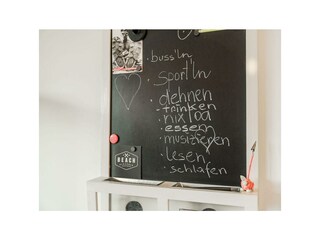 · buss'ln
· Sport'ln
· dehnen
· trinken
· nix toa
· essen
· musizieren
· lesen
· schlafen
BEACH